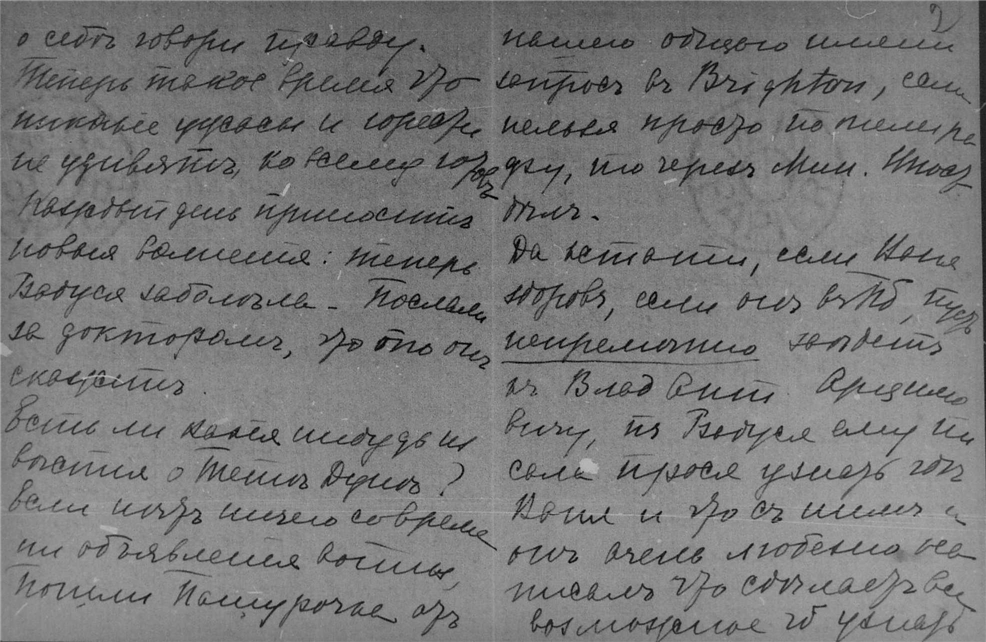 о себѣ говори правду.
Теперь такое время что
никакие ужасы и горести
не удивятъ, ко всему готовъ
Каждый день приноситъ
новыя волненія: теперь
Бабуся заболѣла - Послали
за докторомъ, что то онъ
скажетъ.
Есть ли какія нибудь из
вѣстія о Тетѣ ?
Если нѣтъ ничего со време
ни объявленія войны,
Пошли Пашурочка отъ
2
нашего общаго имени
запросъ въ Brighton, если
нельзя просто по телегра
фу, то черезъ Мин. Иност.
дѣлъ.
Да кстати, если Ваня
здоровъ, если онъ въ Пб, пусть
непремѣнно заѣдетъ
къ Влад Ант Арцимо
вичу, Бабуся ему пи
сала прося узнать гдѣ
Ваня и что съ нимъ и
онъ очень любезно на
писалъ что сдѣлаетъ все
возможное чтоб узнать